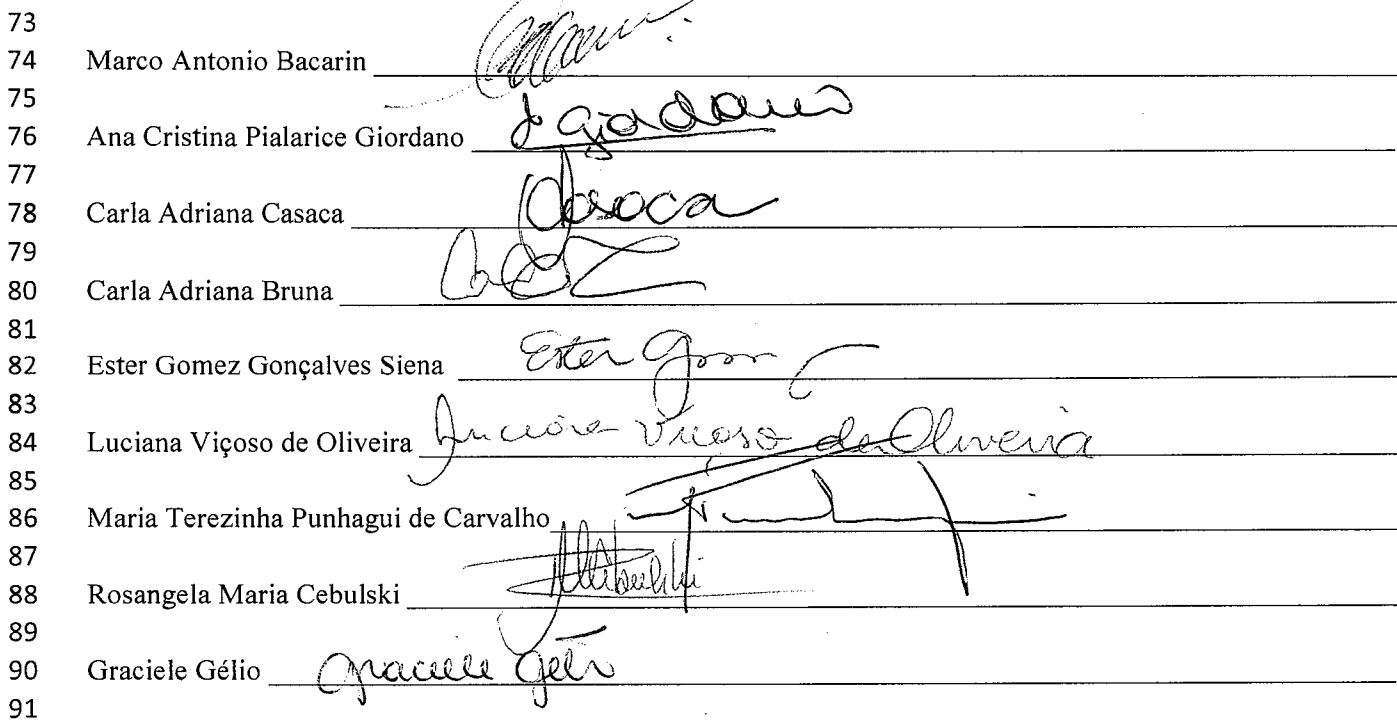 73
74 Marco Antonio Bacarin
75
76 Ana Cristina Pialarice Giordano
77
78 Carla Adriana Casaca Casaca
79
80 Carla Adriana Bruna
81
82 Ester Gomez Gonçalves Siena Ester
83
84 Luciana Viçoso de Oliveira Luciana Viçoso de Oliveira
85
86 Maria Terezinha Punhagui de Carvalho
87
88 Rosangela Maria Cebulski
89
90 Graciele Gélio Graciele Gélio
91